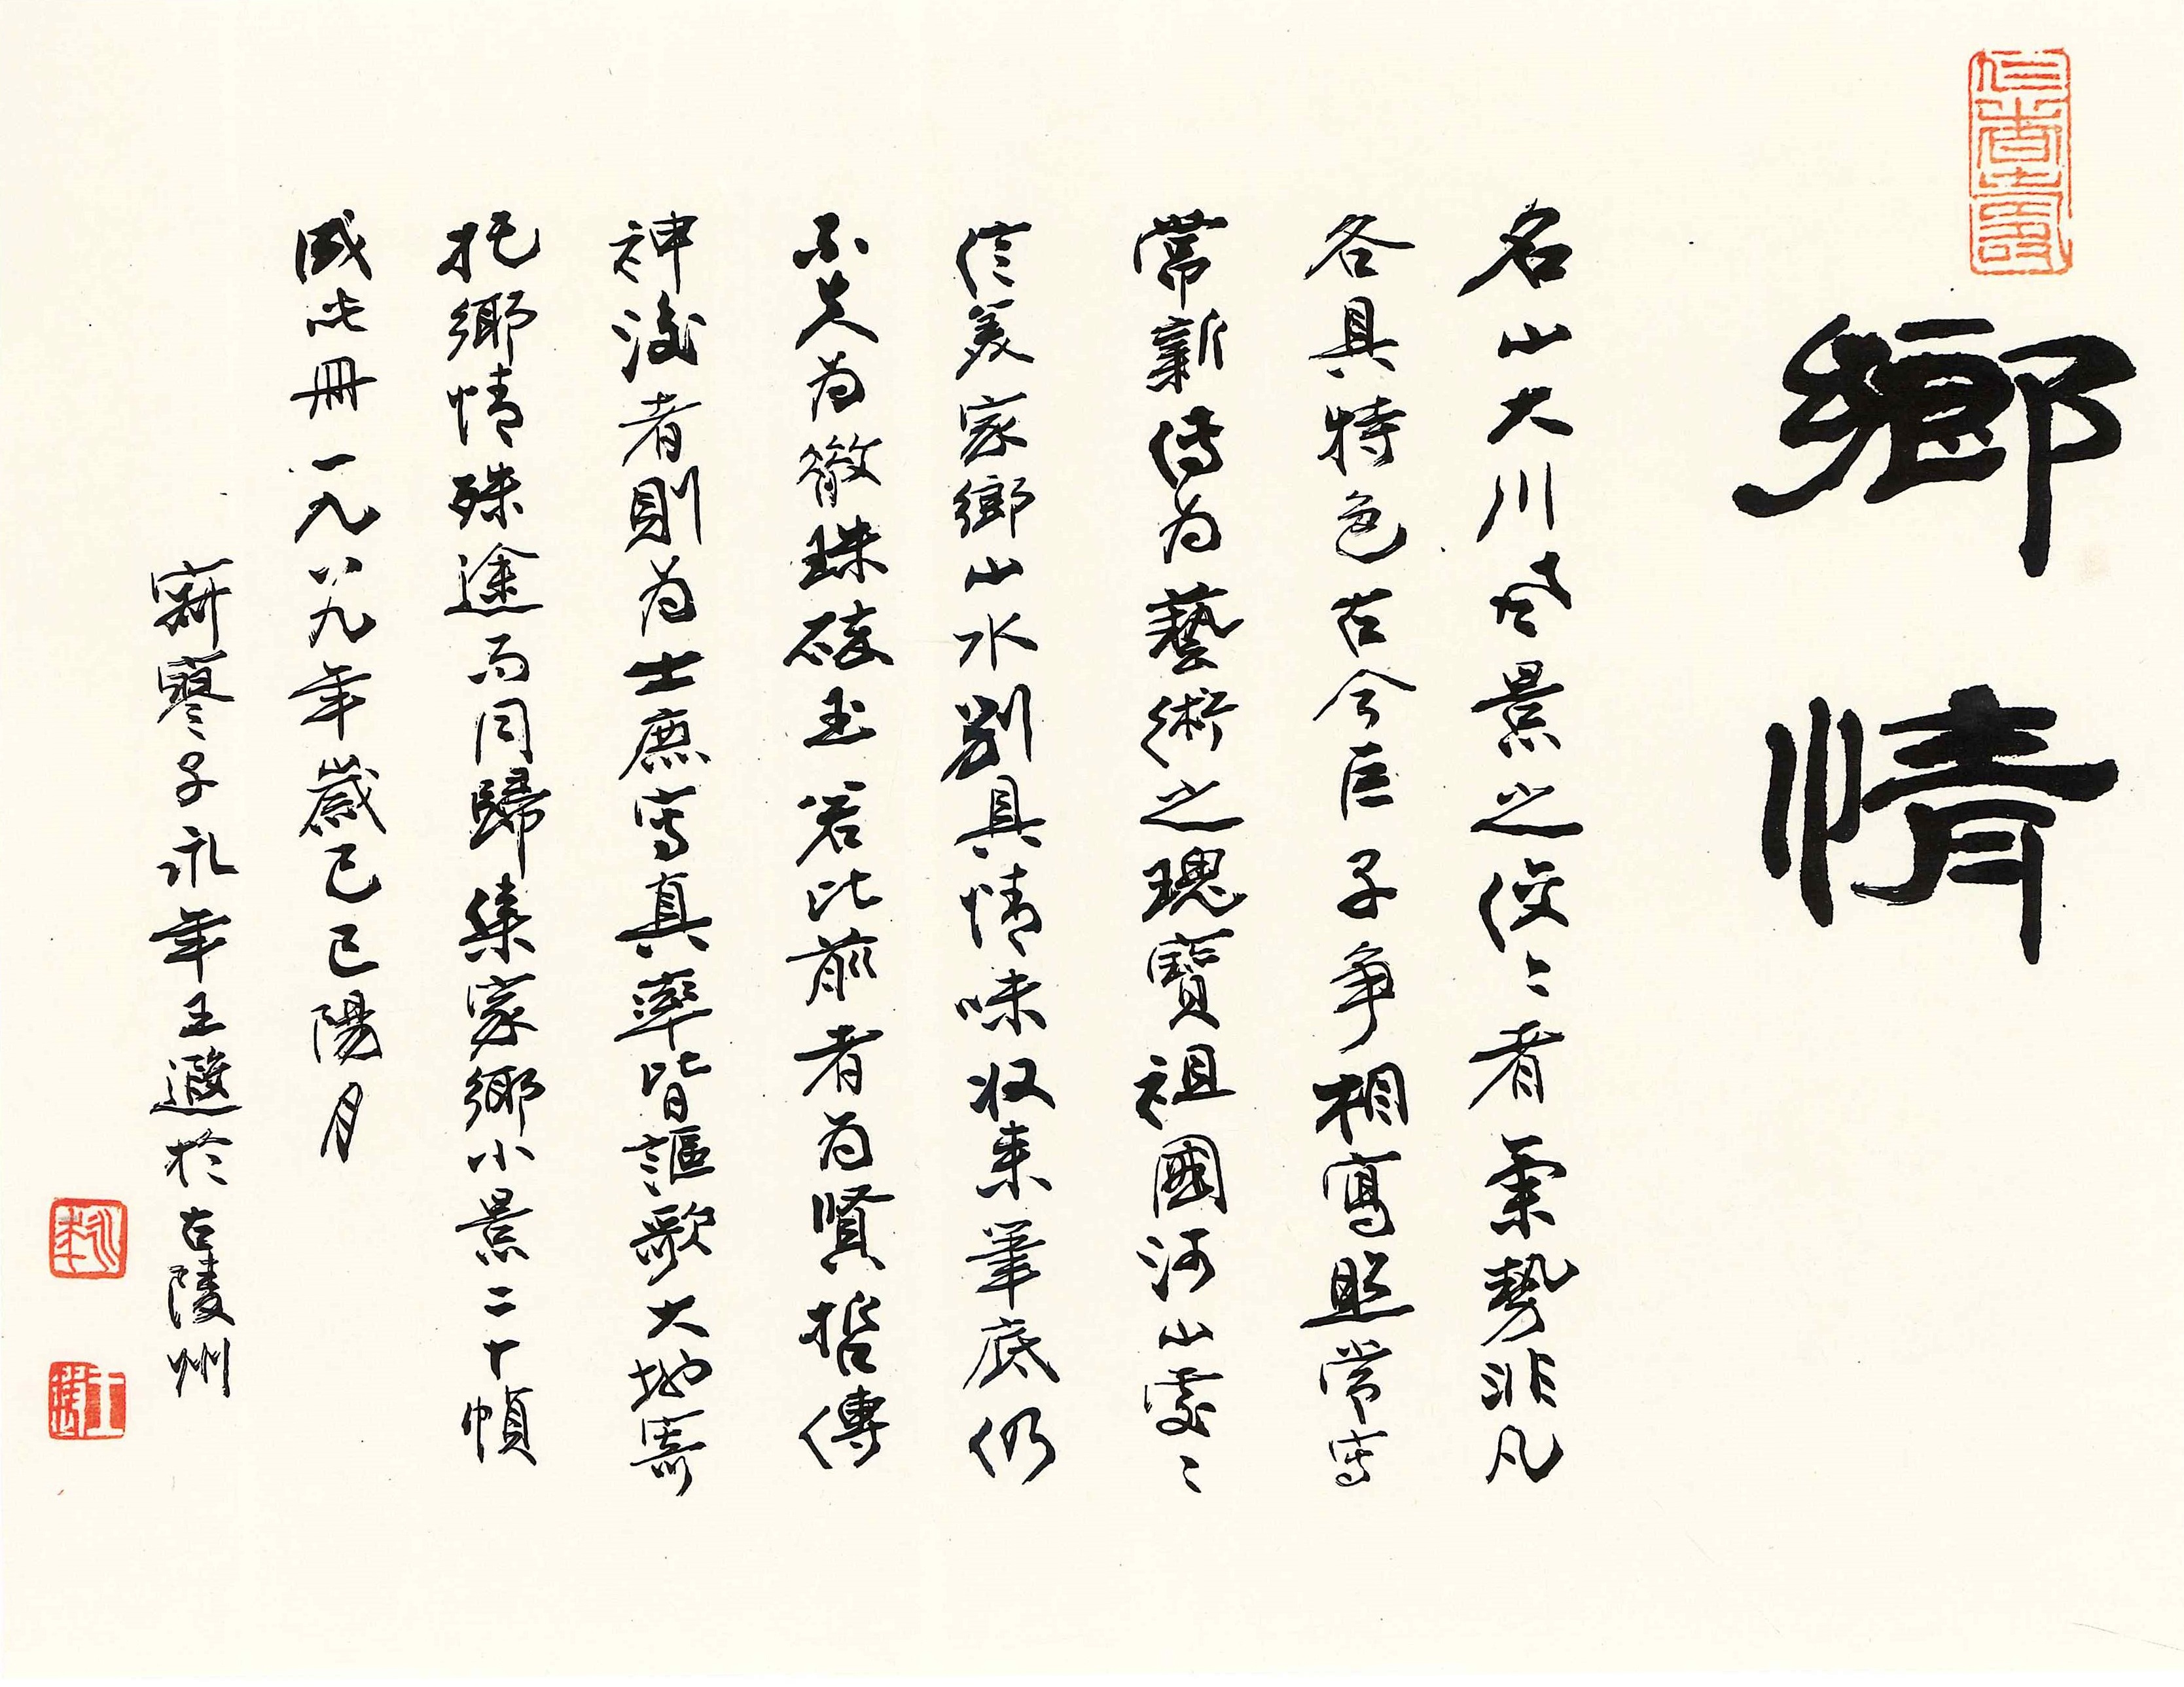 鄉情
名山大川風景之佼々者氣勢非凡
各具特色古今巨子爭相寫照常寫
常新傳为藝術之瑰寶祖國河山處々
信美家鄉山水別具情味收来筆底仍
不失为微珠碎玉若比前者为賢哲傳
神後者則为士庶寫真率皆謳歌大地寄
托鄉情殊途而同歸集家鄉小景二十幀
成此冊一九八九年歲己巳陽月
寂寥子永年王遐於古陵州
永年